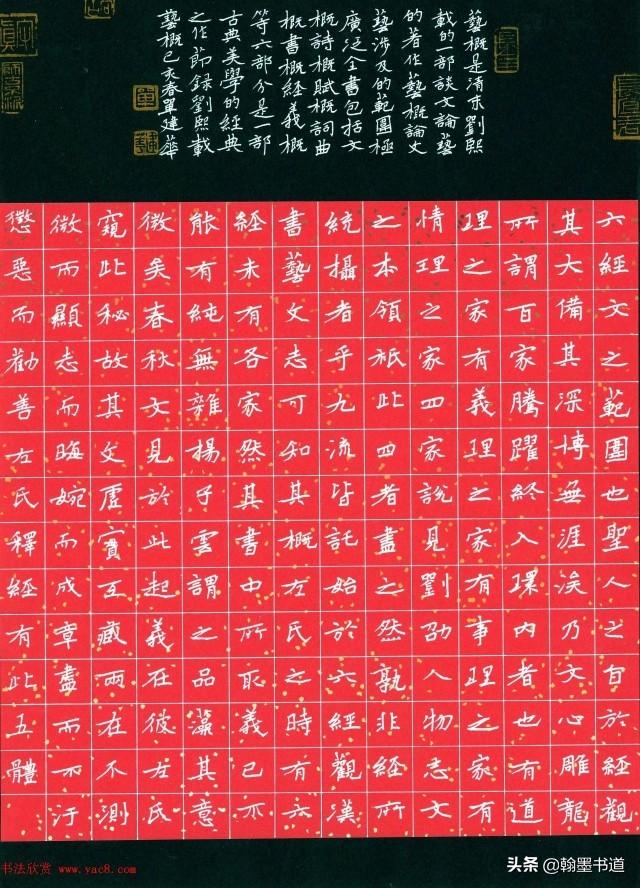 藝概是清末劉熙
載的一部談文論藝
的著作藝概論文
藝涉及的範圍極
廣泛全書包括文
概詩概賦概詞曲
概書概經義概
等六部分是一部
古典美學的經典
之作節錄劉熙載
藝概己亥春單建華
六經文之範圍也聖人之旨於經觀
其大備其深博無涯涘乃文心雕龍
所謂百家騰躍終入環內者也有道
理之家有義理之家有事理之家有
情理之家四家說見劉劭人物志文
之本領祇此四者盡之然孰非經所
統攝者乎九流皆託始於六經觀漢
書藝文志可知其概左氏之時有六
經未有各家然其書中所取義已不
能有純無雜楊子雲謂之品藻其意
微矣春秋文見於此起義在彼左氏
窺此秘故其文虛實互藏兩在不測
微而顯志而晦婉而成章盡而不汙
懲惡而勸善左氏釋經有此五體
书法欣赏 www.yac8.com
头条 @翰墨书道